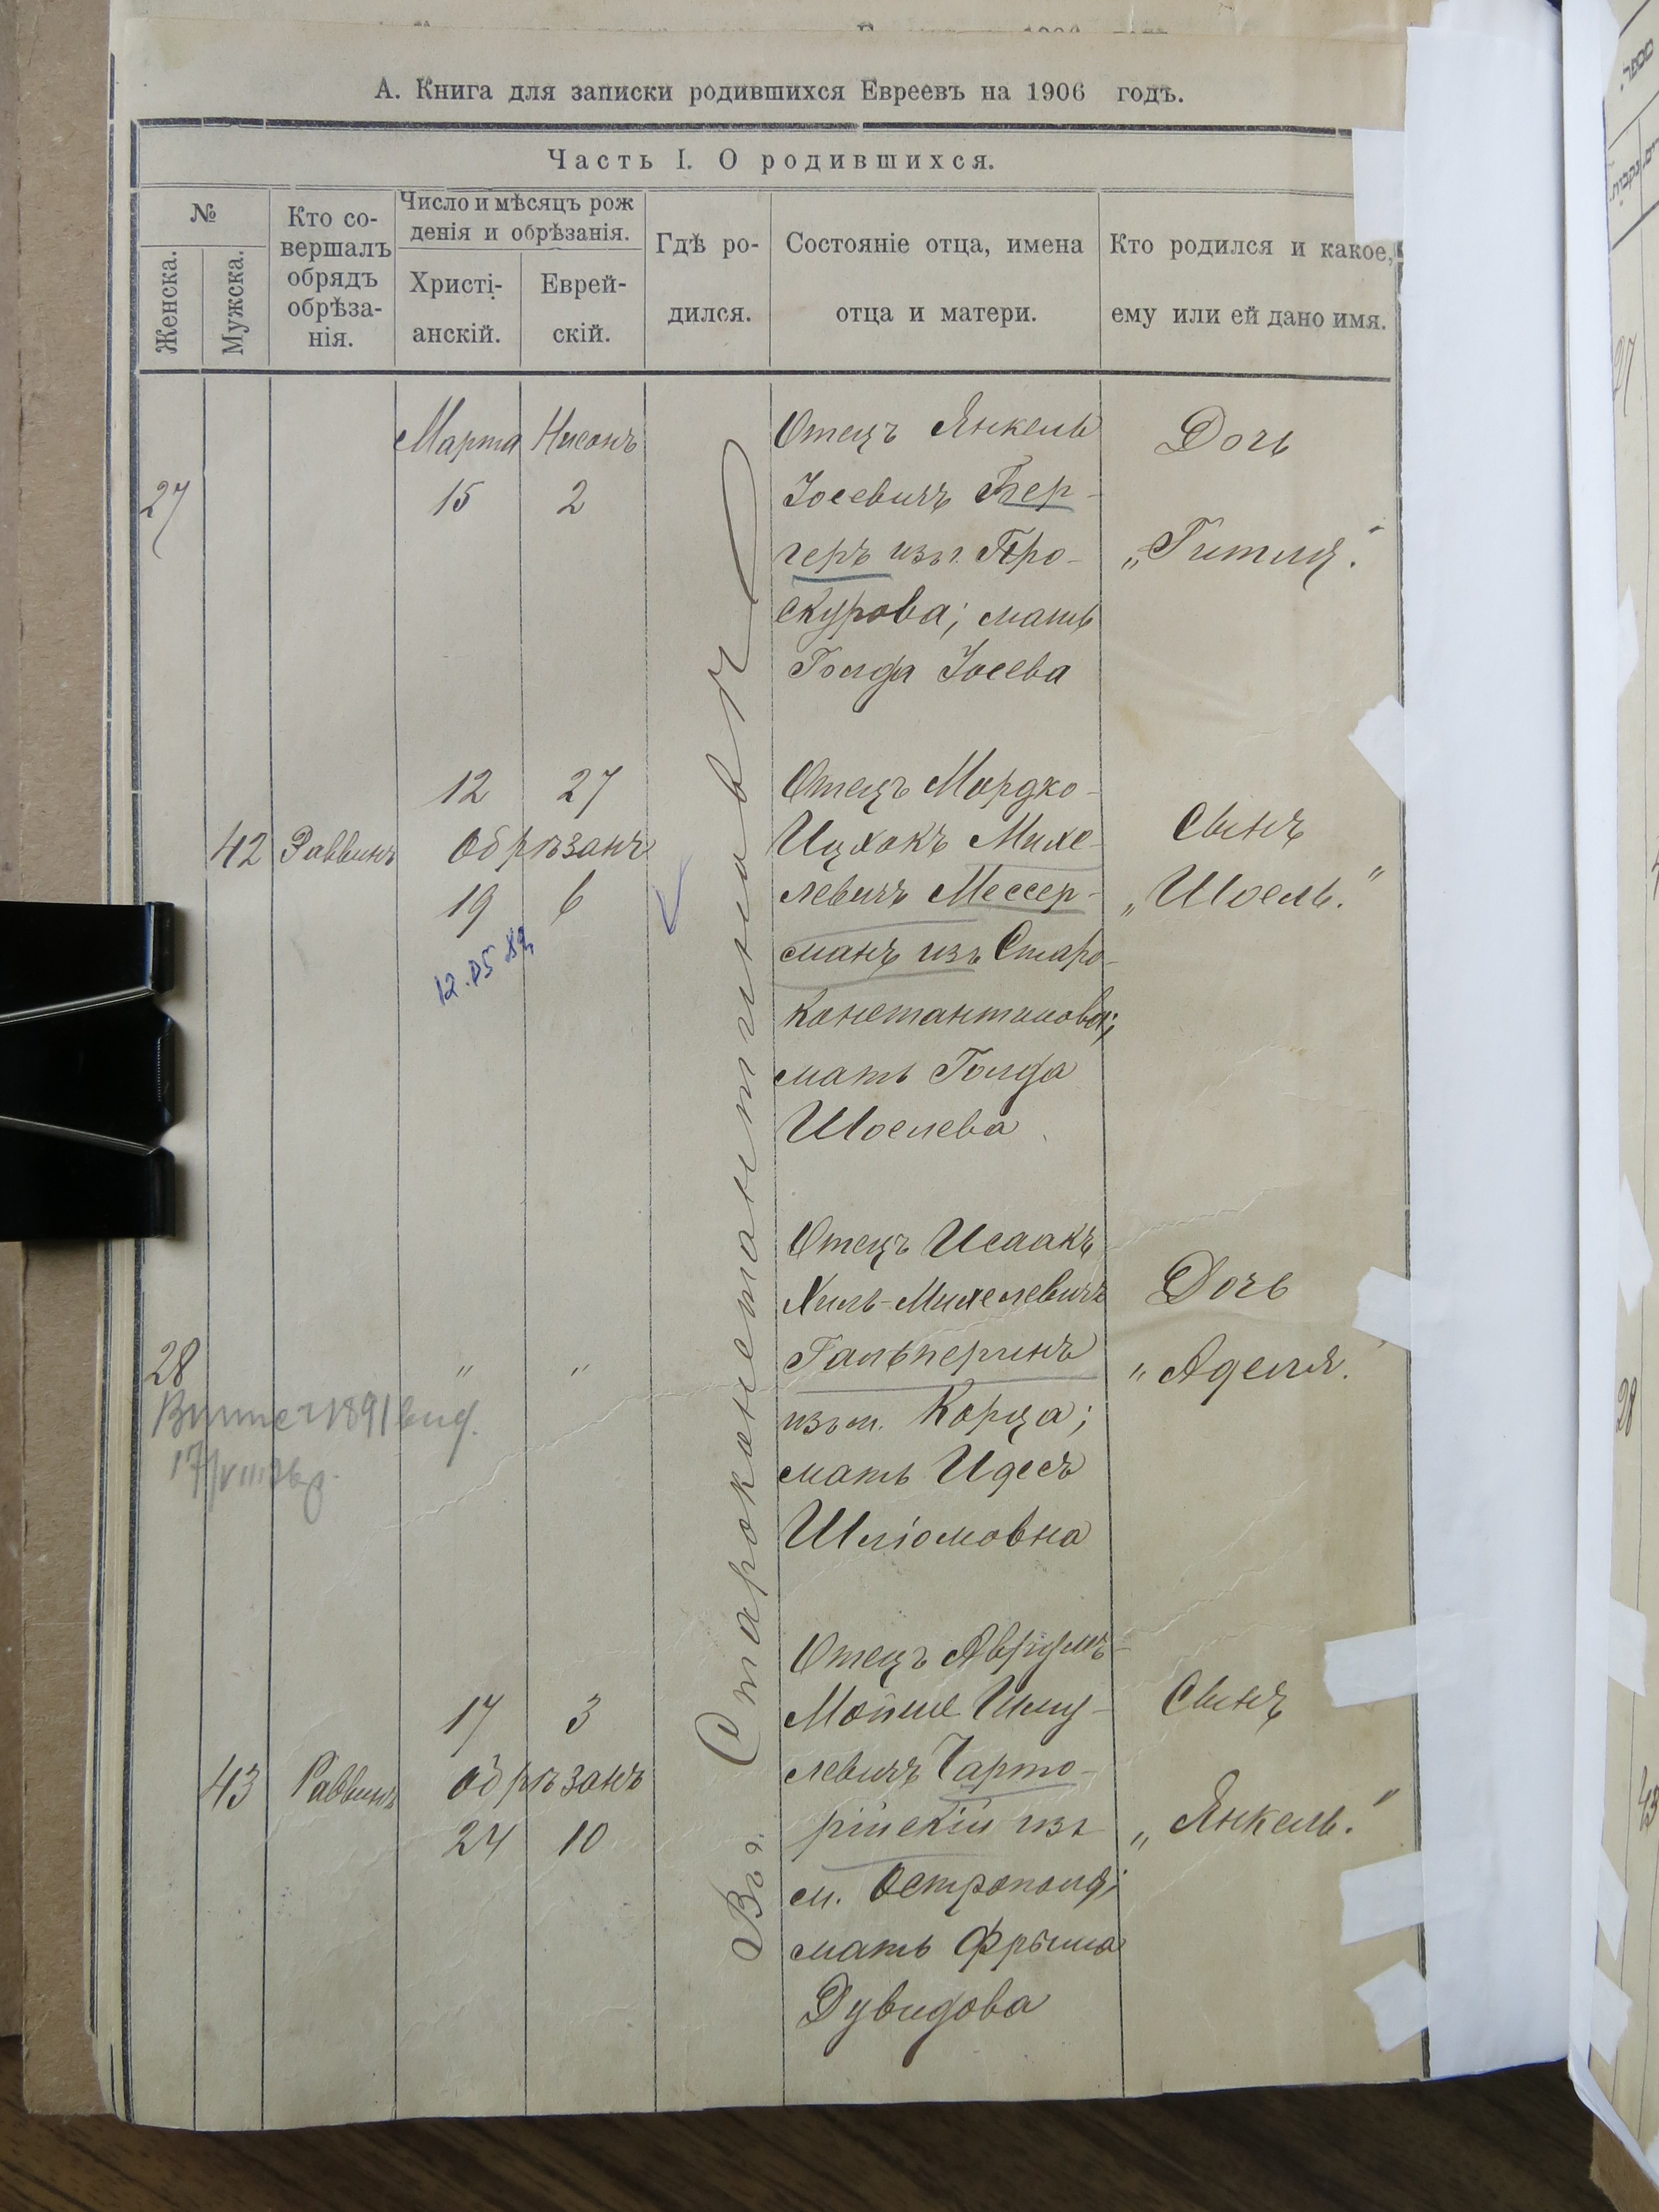 А. Книга для записки родившихся Евреевъ на 1906 годъ.
Часть I. О родившихся.
№
Женска.
Мужска.
Кто со-
вершалъ
обрядъ
обрѣза-
нія.
Число и мѣсяцъ рож
денія и обрѣзанія.
Христі-
анскій.
Еврей-
скій.
Гдѣ ро-
дился.
Состояніе отца, имена
отца и матери.
Кто родился и какое,
ему или ей дано имя.
Въ г. Староконстантиновѣ
27
Марта Нисонъ
15 2
Отецъ Янкель
Іосевичъ Бер-
геръ изъ г. Про-
скурова; мать
Голда Іосева
Дочь
„Гитля."
42 Раввинъ
12 27
Обрѣзанъ
19 6
12.05.89
Отецъ Мордко-
Ицхокъ Михе-
левичъ Мессер-
манъ изъ Старо-
константинова;
мать Голда
Шоелева
Сынъ
„Шоель."
28
" "
Отецъ Исаакъ
Хиль-Михелевичъ
Гальперинъ
изъ м. Корца;
мать Идесъ
Шліомовна
Дочь
„Аделя."
43 Раввинъ
17 3
Обрѣзанъ
24 10
Отецъ Аврумъ-
Мойше Шму-
левичъ Чарто-
рійскій изъ
м. Острополя;
мать Фрыма
Дувидова
Сынъ
„Янкель."
27
28
43